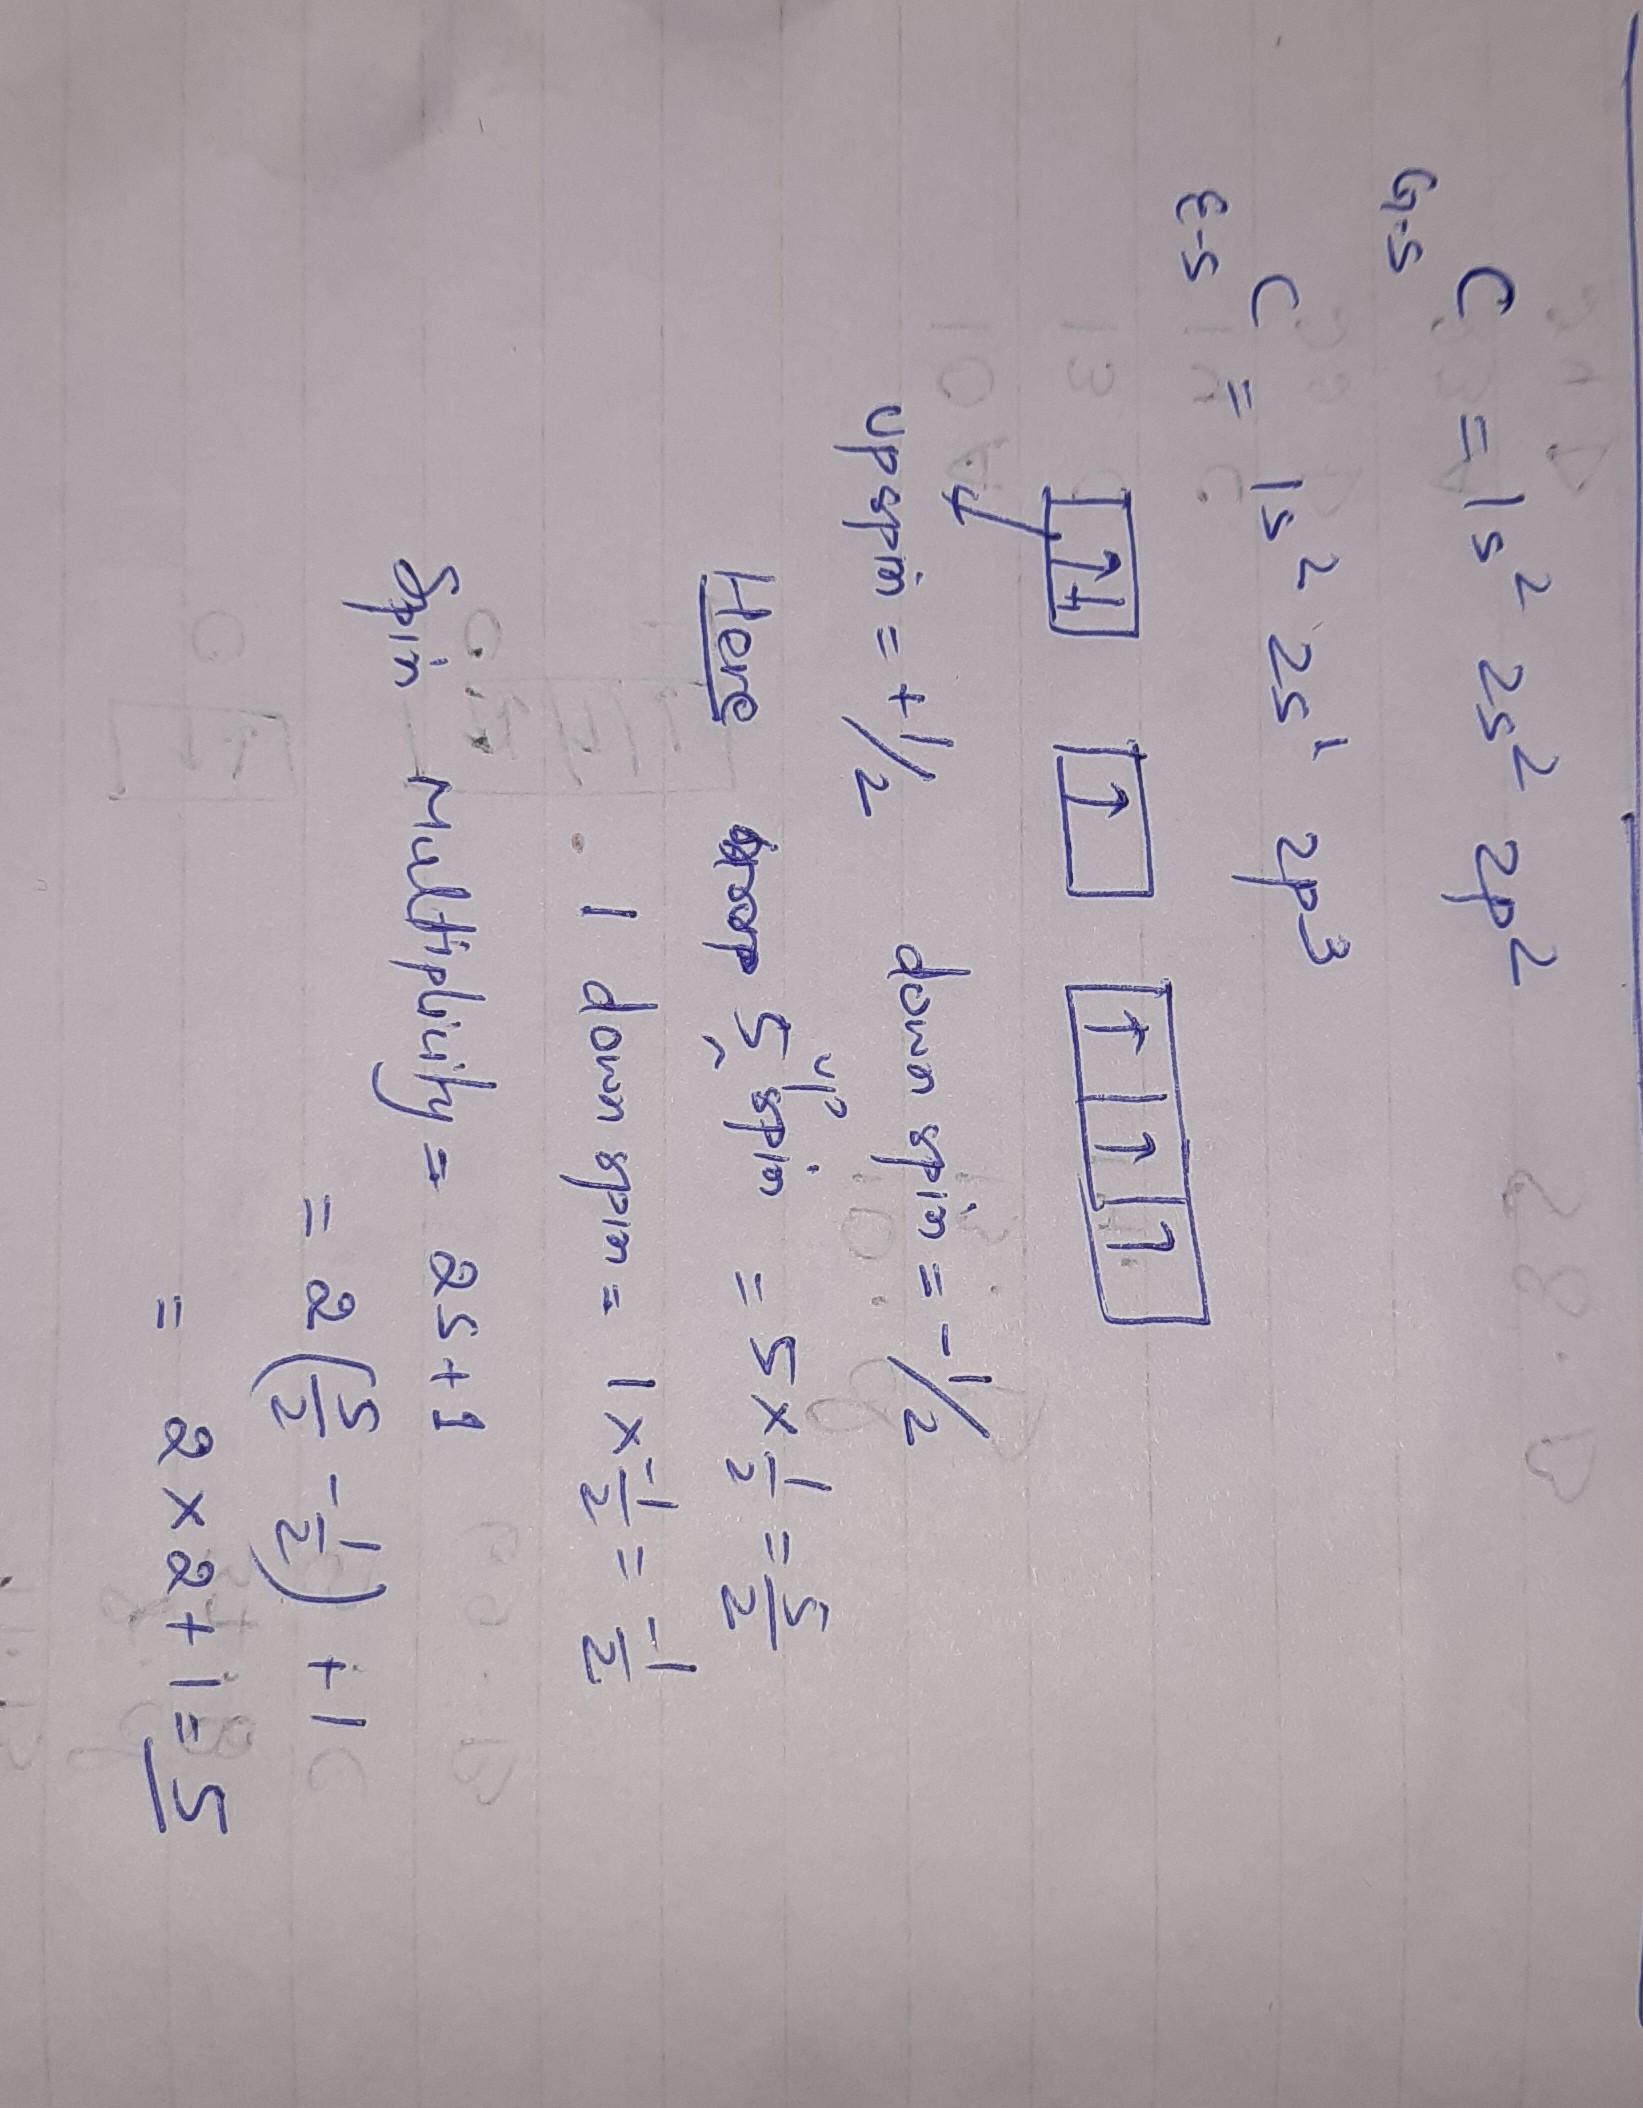 C = 1s² 2s² 2p²
G·S
C = 1s² 2s¹ 2p³
E-S
↑↓ ↑ ↑ ↑ ↑
upspin = +1/2 down spin = -1/2
Here 5 up spin = 5 × 1/2 = 5/2
1 down spin = 1 × -1/2 = -1/2
Spin Multiplicity = 2S+1
= 2(5/2 - 1/2) + 1
= 2 × 2 + 1 = 5